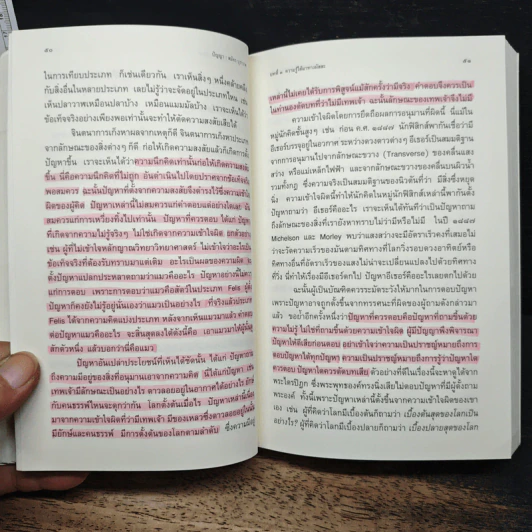 ๕๐
ปัญญา : 
ในการเทียบประเภท ก็เช่นเดียวกัน เราเห็นสิ่งๆ หนึ่งคล้ายคลึง
กับสิ่งอื่นในหลายประเภท เลยไม่รู้ว่าจะจัดอยู่ในประเภทไหน เช่น
เห็นปลาวาฬเหมือนปลาบ้าง เหมือนแมมมัลบ้าง เราจะเห็นได้ว่า
ข้อเท็จจริงอย่างเพียงพอเท่านั้นจะทำให้ตัดความสงสัยเสียได้
จินตนาการเก็งหาผลจากเหตุก็ดี จินตนาการเก็งหาประเภท
จากลักษณะของสิ่งต่างๆ ก็ดี ก่อให้เกิดความสงสัยแล้วก็เกิดการ
ปัญหาขึ้น เราจะเห็นได้ว่าความนึกคิดเท่านั้นก่อให้เกิดความสงสัย
ขึ้น นี่คือความนึกคิดที่ไม่ถูก อันดำเนินไปโดยปราศจากข้อเท็จจริง
พอสมควร ฉะนั้นปัญหาที่ตั้งจากความสงสัยจึงดำรงไว้ซึ่งความ
ผิดของผู้คิด ปัญหาเหล่านี้ไม่สมควรแก่คำตอบแต่อย่างใดเลย
สมควรแก่การเหวี่ยงทิ้งไปเท่านั้น ปัญหาที่ควรตอบ ได้แก่ ปัญหา
ที่เกิดจากความไม่รู้จริงๆ ไม่ใช่เกิดจากความเข้าใจผิด ยกตัวอย่าง
เช่น ผู้ที่ไม่เข้าใจหลักญาณวิทยาวิทยาศาสตร์ ไม่เข้าใจว่าอะไรเป็น
ข้อเท็จจริงที่ต้องรับทราบมาแต่เดิม อะไรเป็นผลของความผิด
ตั้งปัญหาแปลกประหลาดถามว่าแมวคืออะไร ปัญหาอย่างนี้ไม่ควร
แก่การตอบ เพราะการตอบว่าแมวคือสัตว์ในประเภท Felis ผู้ตั้ง
ปัญหาก็คงยังไม่รู้อยู่นั่นเองว่าแมวเป็นอย่างไร ที่จริงแล้วประเภท
Felis ได้จากความคิดแบ่งประเภท หลังจากเห็นแมวมาแล้ว คำตอบ
ต่อปัญหาแมวคืออะไร จะสิ้นสุดลงได้ดังนี้คือ เอาแมวมาให้ผู้นั้นดู
สักตัวหนึ่ง แล้วบอกว่านี่คือแมว
ปัญหาอันเปล่าประโยชน์ที่เห็นได้ชัดนั้น ได้แก่ ปัญหาถาม
ถึงความมีอยู่ของสิ่งที่อนุมานเอาจากความคิด นี้ได้แก่ปัญหา เช่น
เทพเจ้ามีลักษณะเป็นอย่างไร ดาวลอยอยู่ในอากาศได้อย่างไร ยักษ์
กับคนธรรพ์ไหนจะดุกว่ากัน โลกตั้งต้นเมื่อไร ปัญหาเหล่านี้เนื่อง
มาจากความเข้าใจผิดที่ว่ามีเทพเจ้า มีของเหลวซึ่งดาวลอยอยู่ใน
มียักษ์และคนธรรพ์ มีการตั้งต้นของโลกตามลำดับ ซึ่งความมีอยู่
บทที่ ๔ ความรู้ได้มาทางผัสสะ
๕๑
เหล่านี้ไม่เคยได้รับการพิสูจน์แม้สักครั้งว่ามีจริง คำตอบจึงควรเป็น
ในทำนองตัดบทที่ว่าไม่มีเทพเจ้า ฉะนั้นลักษณะของเทพเจ้าจึงไม่มี
ความเข้าใจผิดโดยการยึดถือผลการอนุมานที่ผิดนี้ นี่แม้ใน
หมู่นักคิดชั้นสูงๆ เช่น ก่อน ค.ศ. ๑๘๘๗ นักฟิสิกส์พากันเชื่อว่ามี
อีเธอร์บรรจุอยู่ในอวกาศ ระหว่างดวงดาวต่างๆ อีเธอร์เป็นสมมติฐาน
จากการอนุมานไปจากลักษณะขวาง (Transverse) ของคลื่นแสง
สว่าง หรือแม่เหล็กไฟฟ้า และจากลักษณะขวางของคลื่นบนผิวน้ำ
รวมทั้งกฎ ซึ่งความจริงเป็นสมมติฐานของนิวตันที่ว่า มีสิ่งซึ่งหยุด
นิ่ง ความเข้าใจผิดนี้ทำให้นักคิดในหมู่นักฟิสิกส์เหล่านี้พากันตั้ง
ปัญหาถามว่า อีเธอร์คืออะไร เราจะเห็นได้ทันทีว่าเป็นปัญหาถาม
ถึงลักษณะของสิ่งที่เรายังหาทราบไม่ว่ามีหรือไม่มี ในปี ๑๘๘๗
Michelson และ Morley พบว่าแสงสว่างจะมีอัตราเร็วคงที่เสมอไป
ไม่ว่าจะวัดความเร็วของมันตามทิศทางที่โลกวิ่งรอบดวงอาทิตย์หรือ
ทิศทางอื่นที่อัตราเร็วของแสงไม่น่าจะเปลี่ยนแปลงไปด้วยทิศทาง
ที่วิ่ง นี่ทำให้เรื่องมีอีเธอร์ตกไป ปัญหาอีเธอร์คืออะไรเลยตกไปด้วย
ฉะนั้นผู้เป็นบัณฑิตควรระมัดระวังให้มากในการตอบปัญหา
เพราะปัญหาอาจถูกตั้งขึ้นจากทรรศนะที่ผิดของผู้ถามดังกล่าวมา
แล้ว ขอย้ำอีกครั้งหนึ่งว่าปัญหาที่ควรตอบคือปัญหาที่ถามขึ้นด้วย
ความไม่รู้ ไม่ใช่ที่ถามขึ้นด้วยความเข้าใจผิด ผู้มีปัญญาพึงพิจารณา
ปัญหาให้ดีเสียก่อนตอบ อย่าเข้าใจว่าความเป็นปราชญ์หมายถึงการ
ตอบปัญหาได้ทุกปัญหา ความเป็นปราชญ์หมายถึงการรู้ว่าปัญหาใด
ควรตอบ ปัญหาใดควรตัดบทเสีย ตัวอย่างที่ดีในเรื่องนี้จะหาดูได้จาก
พระไตรปิฎก ซึ่งพระพุทธองค์ทรงนิ่งเสียไม่ตอบปัญหาที่มีผู้ตั้งถาม
พระองค์ ทั้งนี้เพราะปัญหาเหล่านี้ตั้งขึ้นจากความเข้าใจผิดของเขา
เอง เช่น ผู้ที่คิดว่าโลกมีเบื้องต้นก็ถามว่า เบื้องต้นสุดของโลกเป็น
อย่างไร? ผู้ที่คิดว่าโลกมีเบื้องปลายก็ถามว่า เบื้องปลายสุดของโลก